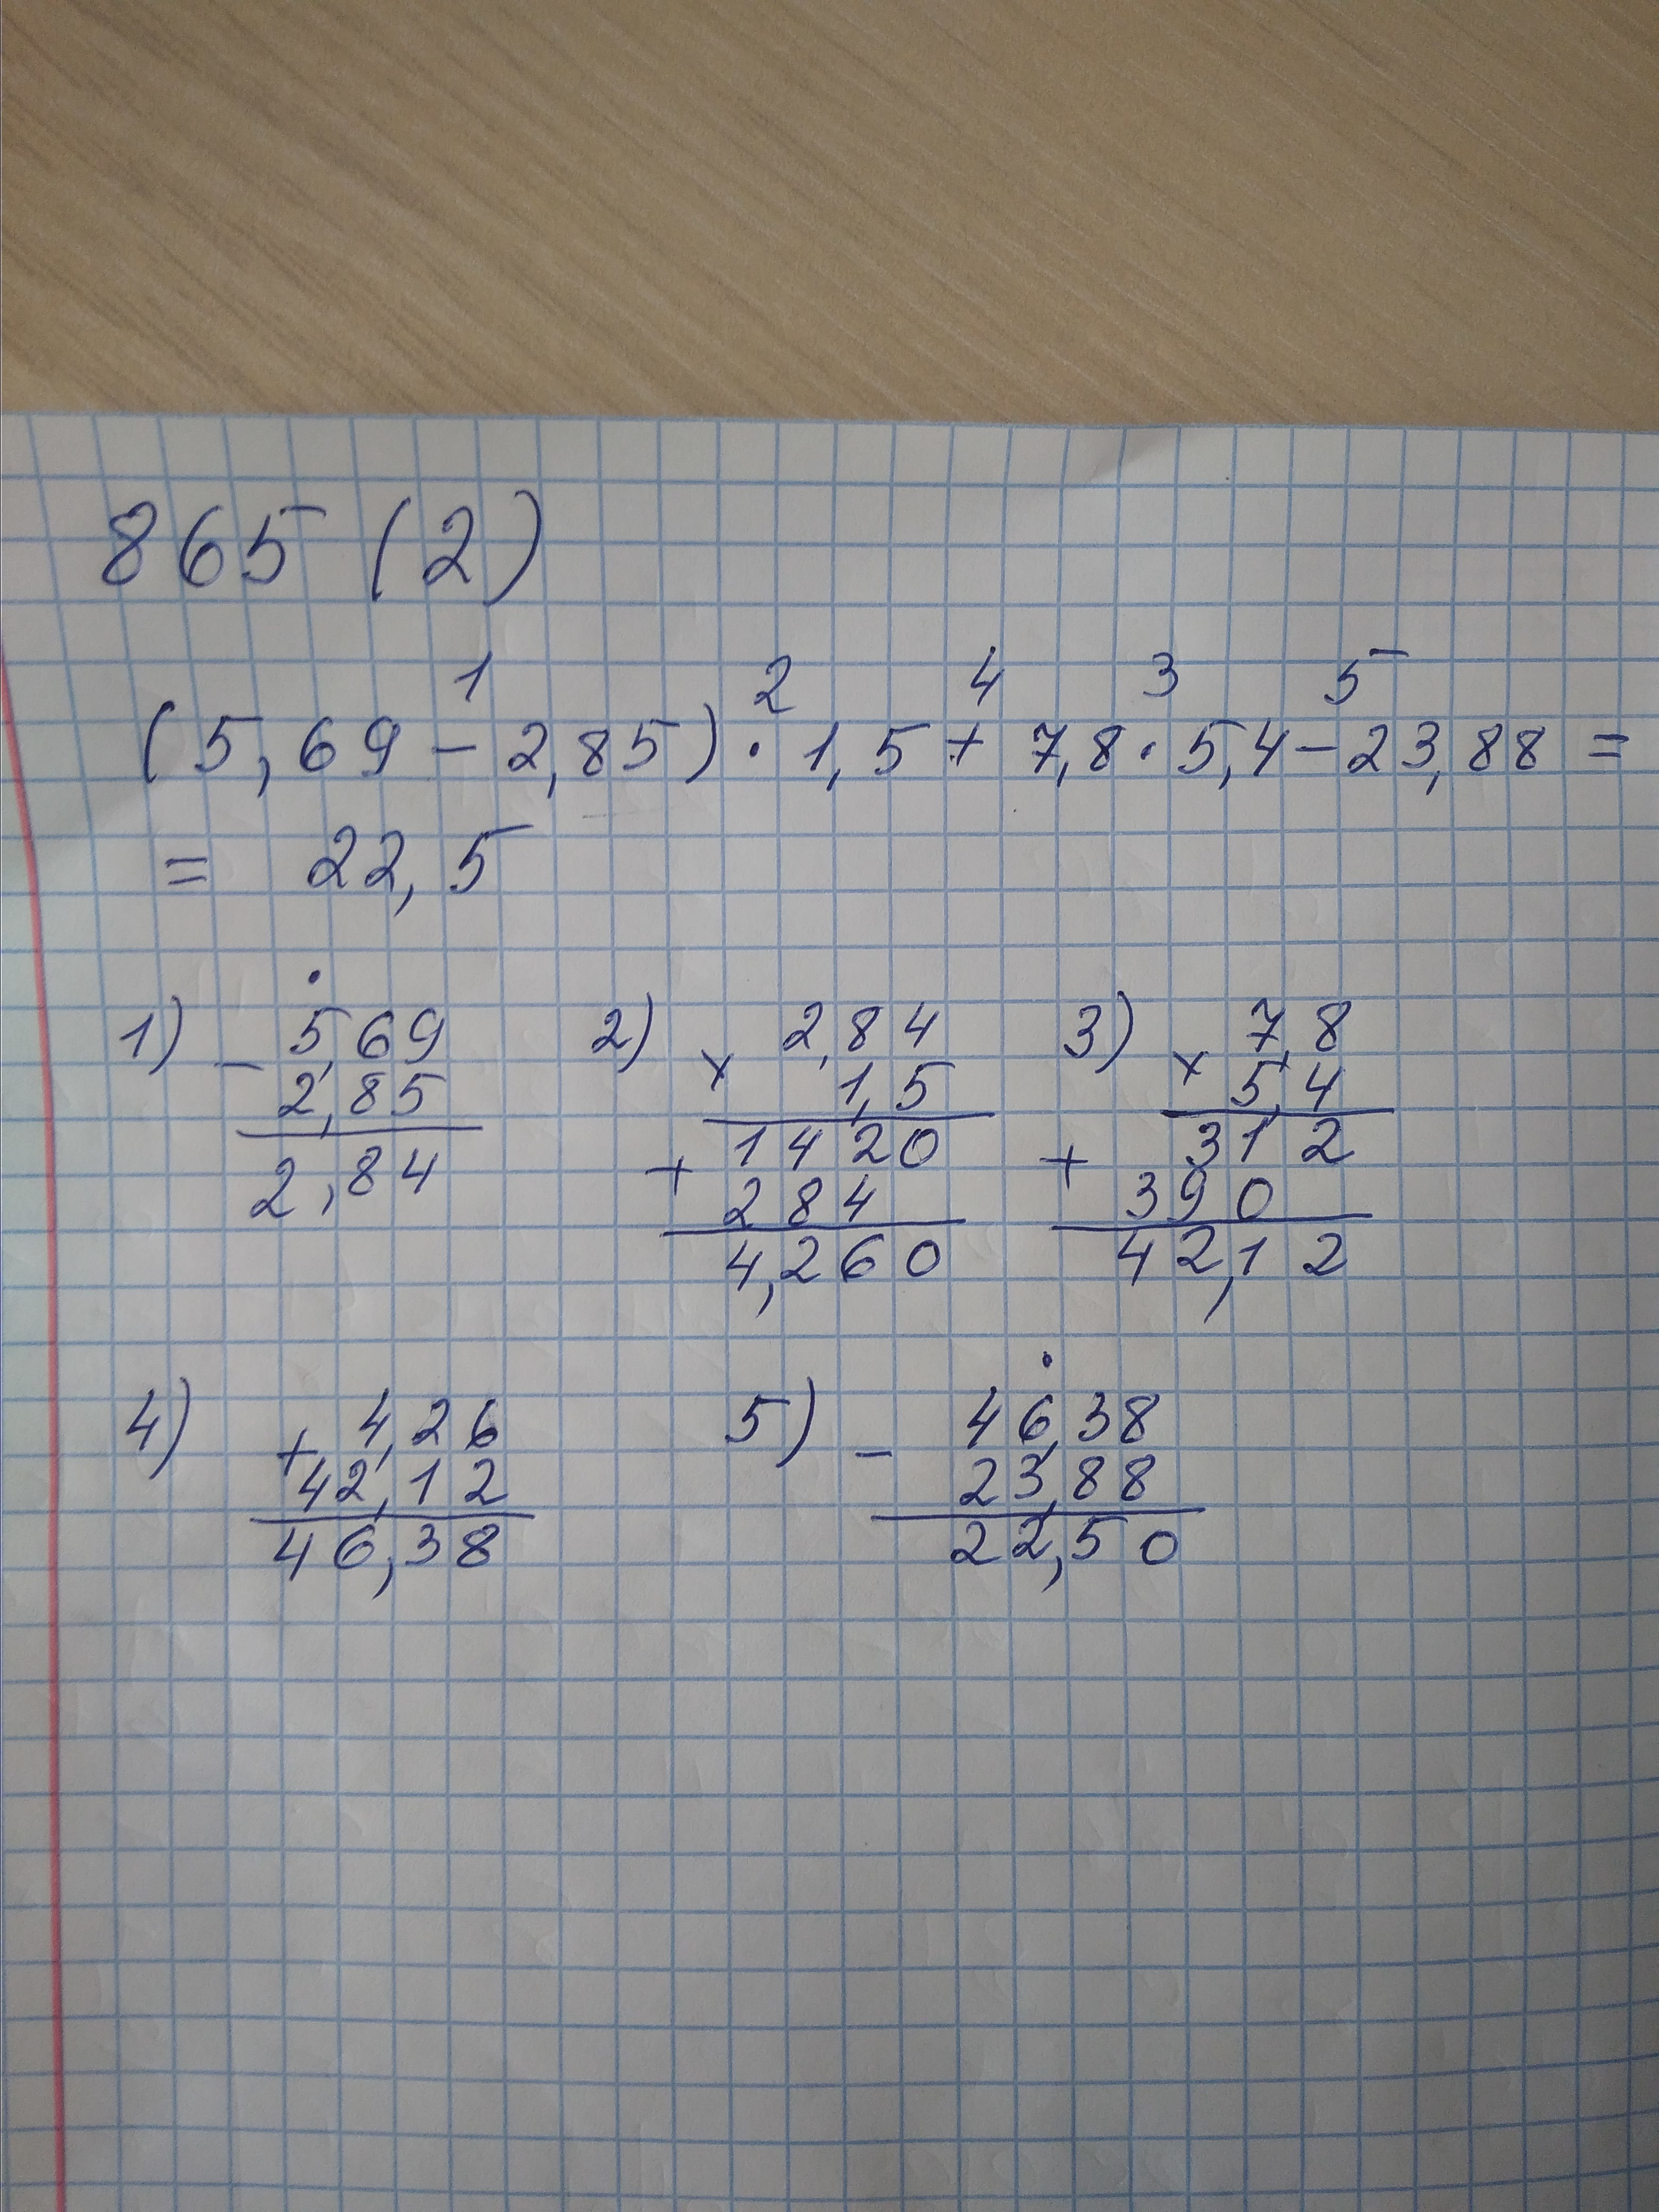 865 (2)
1 2 4 3 5
(5,69 - 2,85) · 1,5 + 7,8 · 5,4 - 23,88 =
= 22,5
1) - 5,69
2,85
2,84
2) × 2,84
1,5
+ 1420
284
4,260
3) × 7,8
5,4
+ 312
390
42,12
4) + 4,26
42,12
46,38
5) - 46,38
23,88
22,50